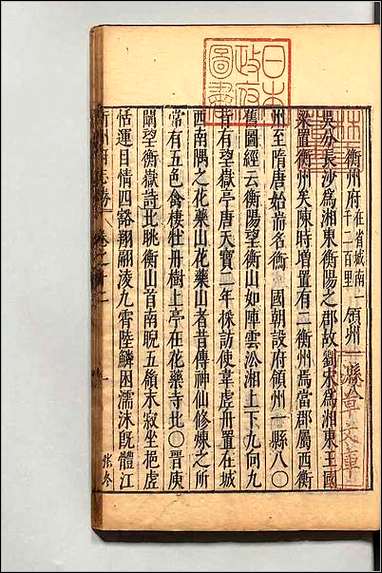 衡州府在省城南一千二百里領州一縣
吳分長沙為湘東衡陽之郡故劉宋為湘東王國
梁置衡州矣陳時增置有二衡州焉當郡屬西衡
州至隋唐始耑名衡 國朝設府領州一縣八〇
舊圖經云衡陽望衡山如陣雲沿湘上下九向九
背有望嶽亭唐天寶二年採訪使韋虛舟置在城
西南隅之花藥山花藥山者昔傳神仙修煉之所
常有五色禽棲牡丹樹上亭在花藥寺北〇晉庾
闡望衡嶽詩北眺衡山首南睨五嶺末寂坐挹虛
恬運目情四豁翔翮淩九霄陸鱗困濡沫旣體江
日本
政府
圖書